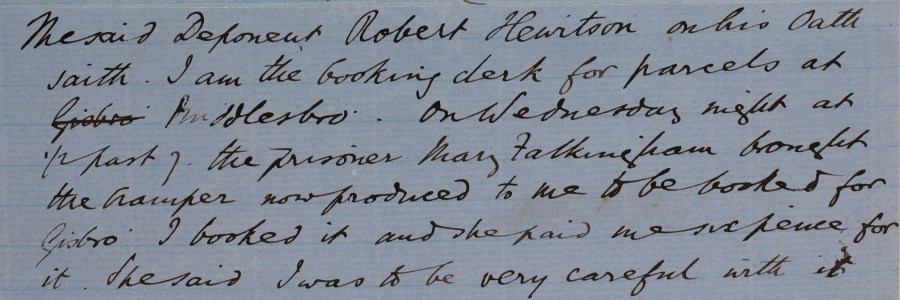 The said Deponent Robert Hewitson on his Oath
saith. I am the booking clerk for parcels at
Gisbro' Middlesbro'. On Wednesday night at
1/2 past 7. the prisoner Mary Falkingham brought
the hamper now produced to me to be booked for
Gisbro' I booked it and she paid me sixpence for
it. She said I was to be very careful with it